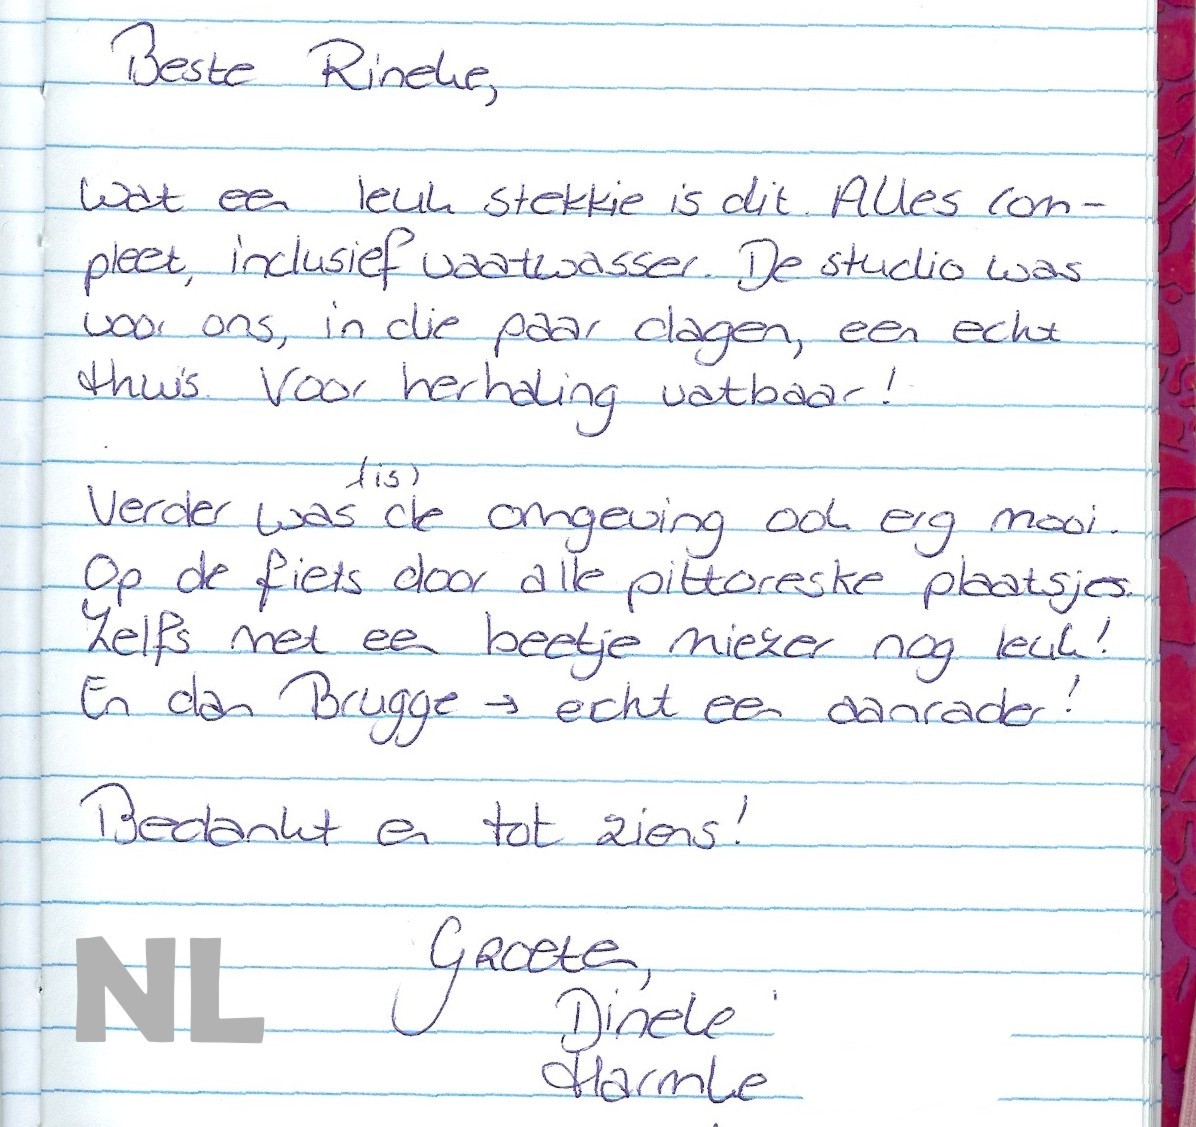 Beste Rineke,
Wat een leuk stekkie is dit. Alles com-
pleet, inclusief vaatwasser. De studio was
voor ons, in die paar dagen, een echt
thuis. Voor herhaling vatbaar!
(is)
Verder was de omgeving ook erg mooi.
Op de fiets door alle pittoreske plaatsjes.
Zelfs met een beetje miezer nog leuk!
En dan Brugge → echt een aanrader!
Bedankt en tot ziens!
Groeten,
Dineke
Harmke
NL